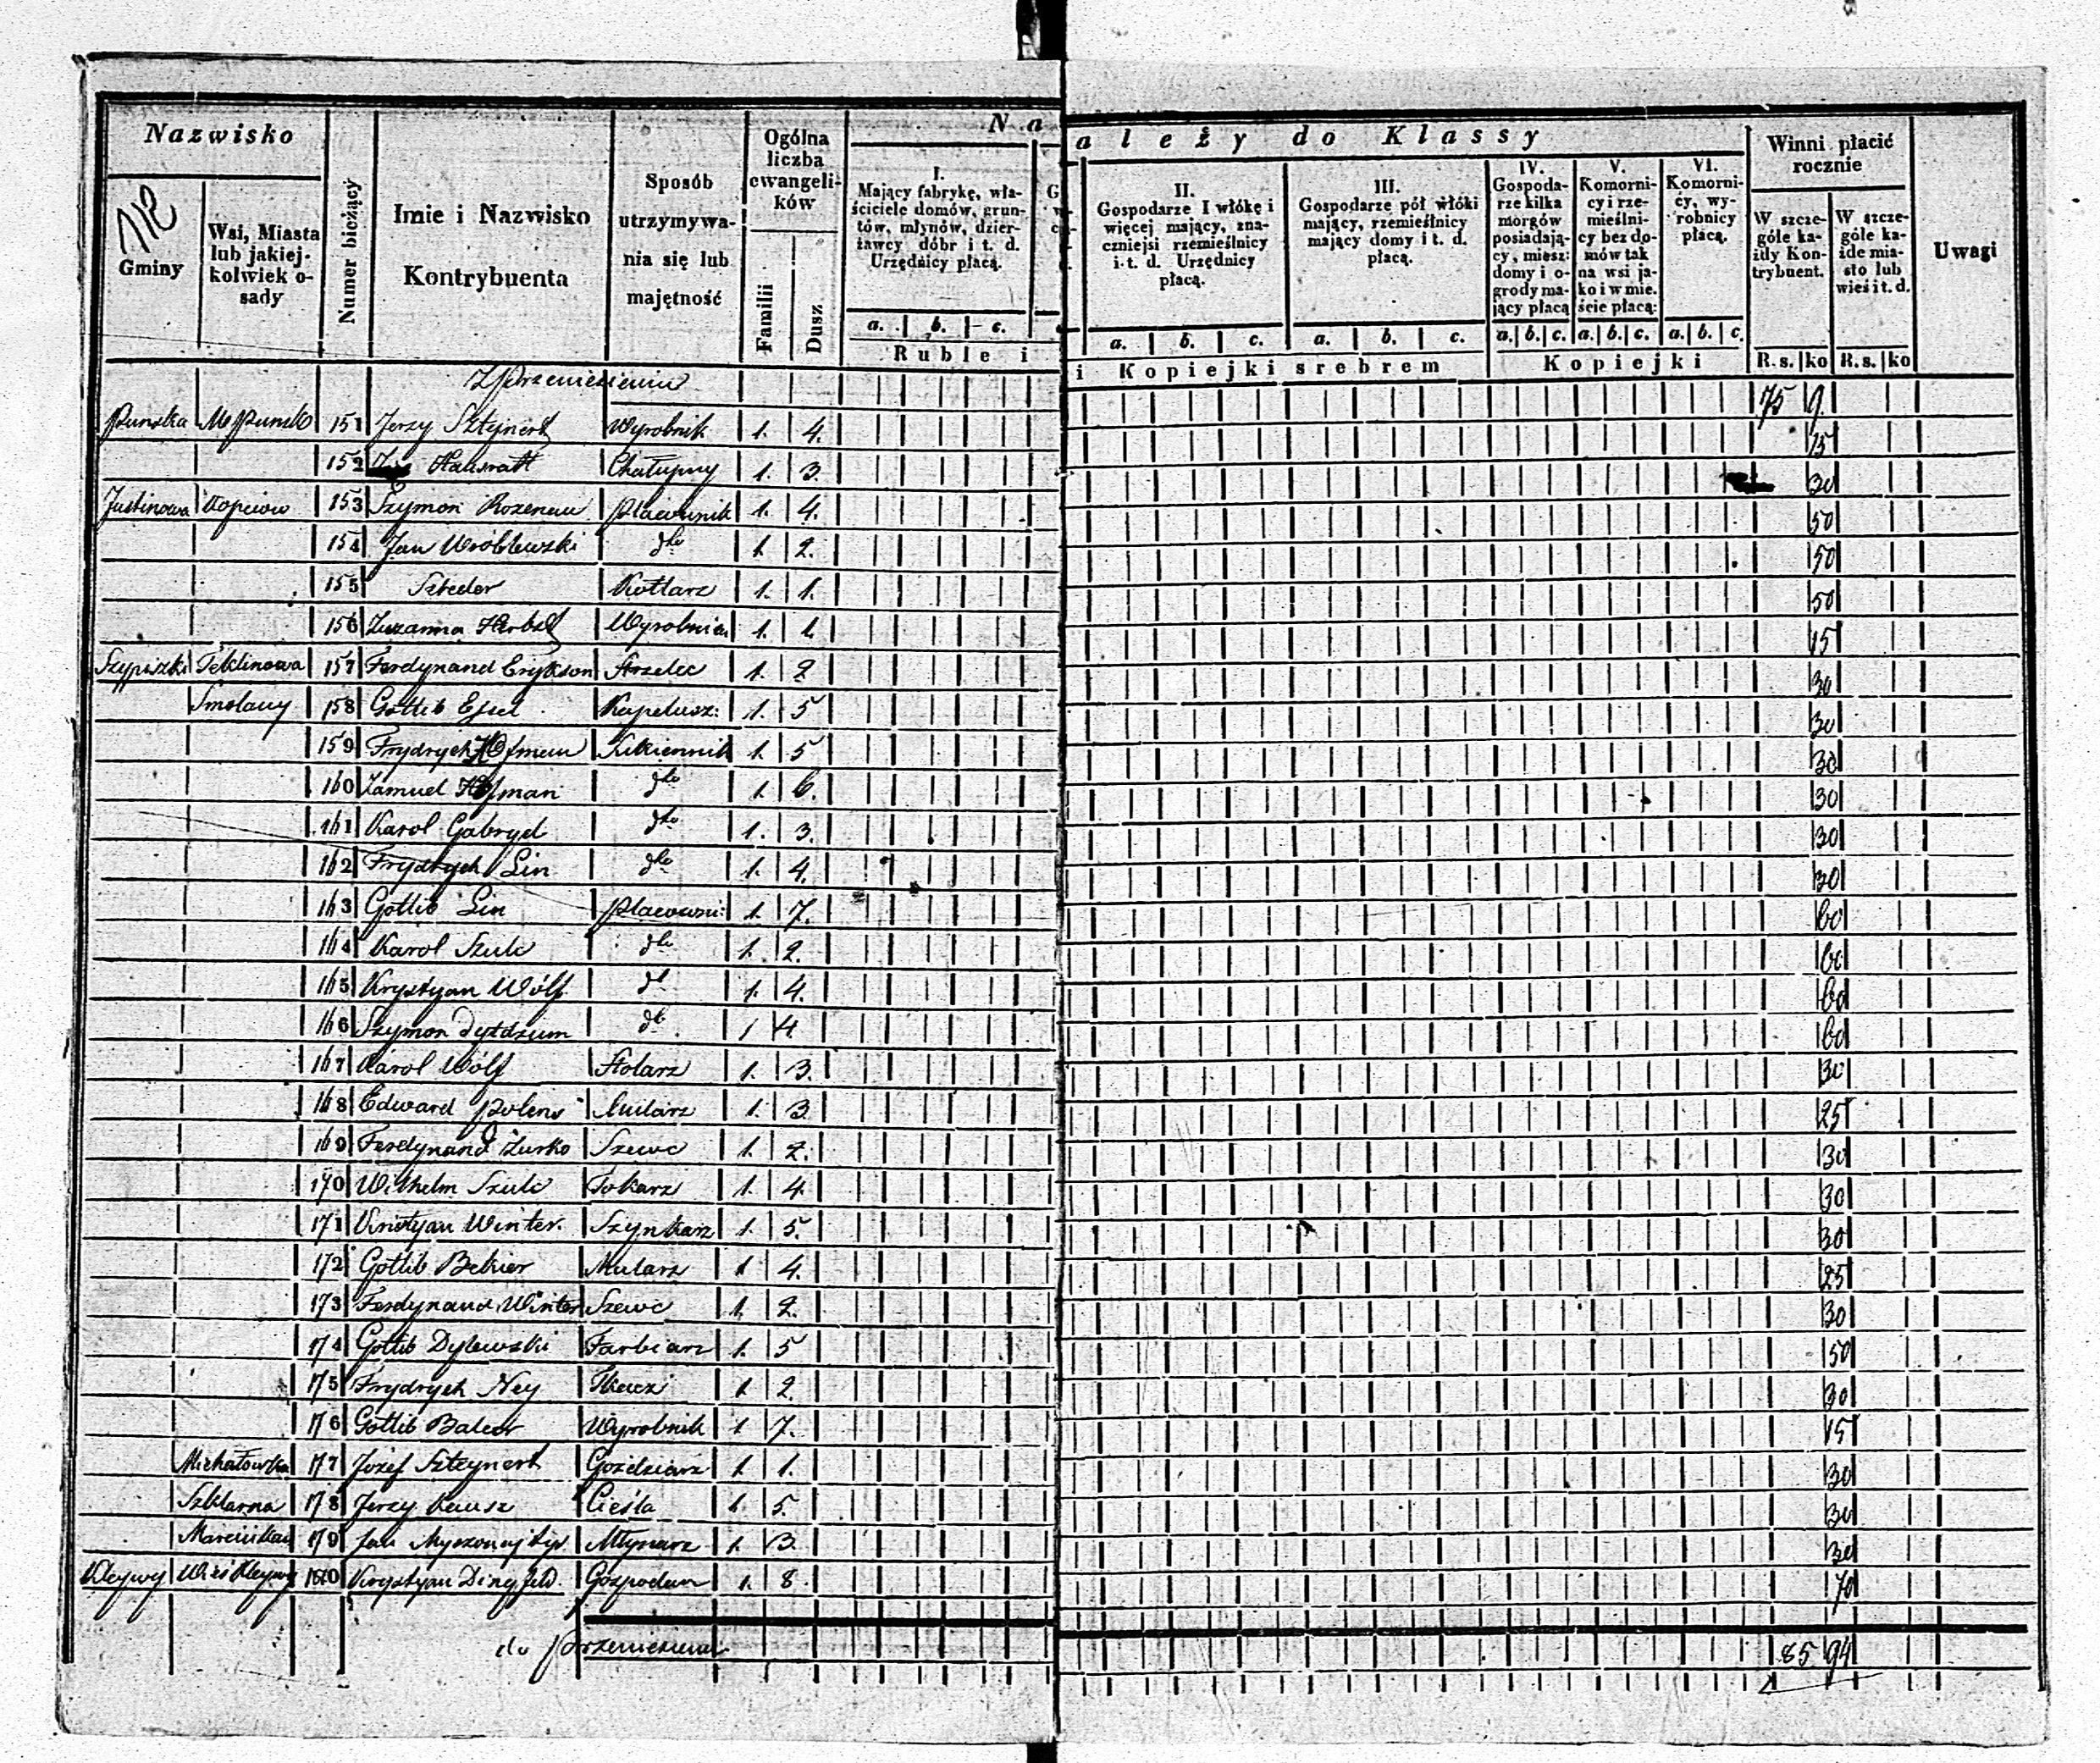 Nazwisko
Numer bieżący
Imie i Nazwisko
Kontrybuenta
Sposób
utrzymywa-
nia się lub
majętność
Ogólna
liczba
ewangeli-
ków
Familii
Dusz
Na
ależy do Klassy
Gminy
Wsi, Miasta
lub jakiej-
kolwiek o-
sady
I.
Mający fabrykę, wła-
ściciele domów, grun-
tów, młynów, dzier-
żawcy dóbr i t. d.
Urzędnicy płacą.
a. b. c.
II.
Gospodarze I włókę i
więcej mający, zna-
czniejsi rzemieślnicy
i t. d. Urzędnicy
płacą.
a. b. c.
III.
Gospodarze pół włóki
mający, rzemieślnicy
mający domy i t. d.
płacą.
a. b. c.
IV.
Gospoda-
rze kilka
morgów
posiadają-
cy, miesz:
domy i o-
grody ma-
jący płacą
a. b. c.
V.
Komorni-
cy i rze-
mieślni-
cy bez do-
mów tak
na wsi ja-
ko i w mie.
ście płacą:
a. b. c.
VI.
Komorni-
cy, wy-
robnicy
płacą.
a. b. c.
Winni płacić
rocznie
W szcze-
góle ka-
żdy Kon-
trybuent.
W szcze-
góle ka-
żde mia-
sto lub
wieś i t. d.
Uwagi
Ruble i
i Kopiejki srebrem
Kopiejki
R.s. ko R.s. ko
Z przeniesienia 75 9.
Puńska M Puńsk 151 Jerzy Sztejnert Wyrobnik 1. 4. 15
152 Hausratt Chałupny 1. 3. 30
Justinowa Kopciow 153 Szymon Rozenau Placownik 1. 4. 50
154 Jan Wróblewski dto 1. 2. 50
155 Szteder Kotlarz 1. 1. 50
156 Zuzanna Herbst Wyrobnica 1. 1. 15
Szypliszki Teklinowa 157 Ferdynand Erykson Strzelec 1. 2 30
Smolany 158 Gotlib Essel Kapelusz: 1. 5 30
159 Frydrych Hofman Sukiennik 1. 5 30
160 Zamuel Hofman dto 1. 6. 30
161 Karol Gabryel dto 1. 3. 30
162 Frydrych Lin dto 1. 4. 30
163 Gotlib Lin Placowni: 1. 7. 60
164 Karol Szulc dto 1. 2. 60
165 Krystyan Wólf dt 1. 4. 60
166 Szymon dto 1 4. 60
167 Karol Wólf Stolarz 1. 3. 30
168 Edward Polens Mularz 1. 3. 25
169 Ferdynand Zurko Szewc 1. 2. 30
170 Wilhelm Szulc Tokarz 1. 4. 30
171 Kristyan Winter. Szynkarz 1. 5. 30
172 Gotlib Bekier Mularz 1 4. 25
173 Ferdynand Winter Szewc 1. 2. 30
174 Gotlib Dylewski Farbiarz 1. 5 50
175 Frydrych Ney Tkacz 1. 2. 30
176 Gotlib Balcer Wyrobnik 1 7. 15
Michałówka 177 Józef Szteynert Gozdziarz 1. 1. 30
Szklarna 178 Jerzy Kausz Cieśla 1. 5. 30
179 Jan Młynarz 1. 3. 30
Kleywy Wieś Kleywy 180 Krystyan Dingfeld. Gospodarz 1. 8. 70
do Przeniesienia 85 94